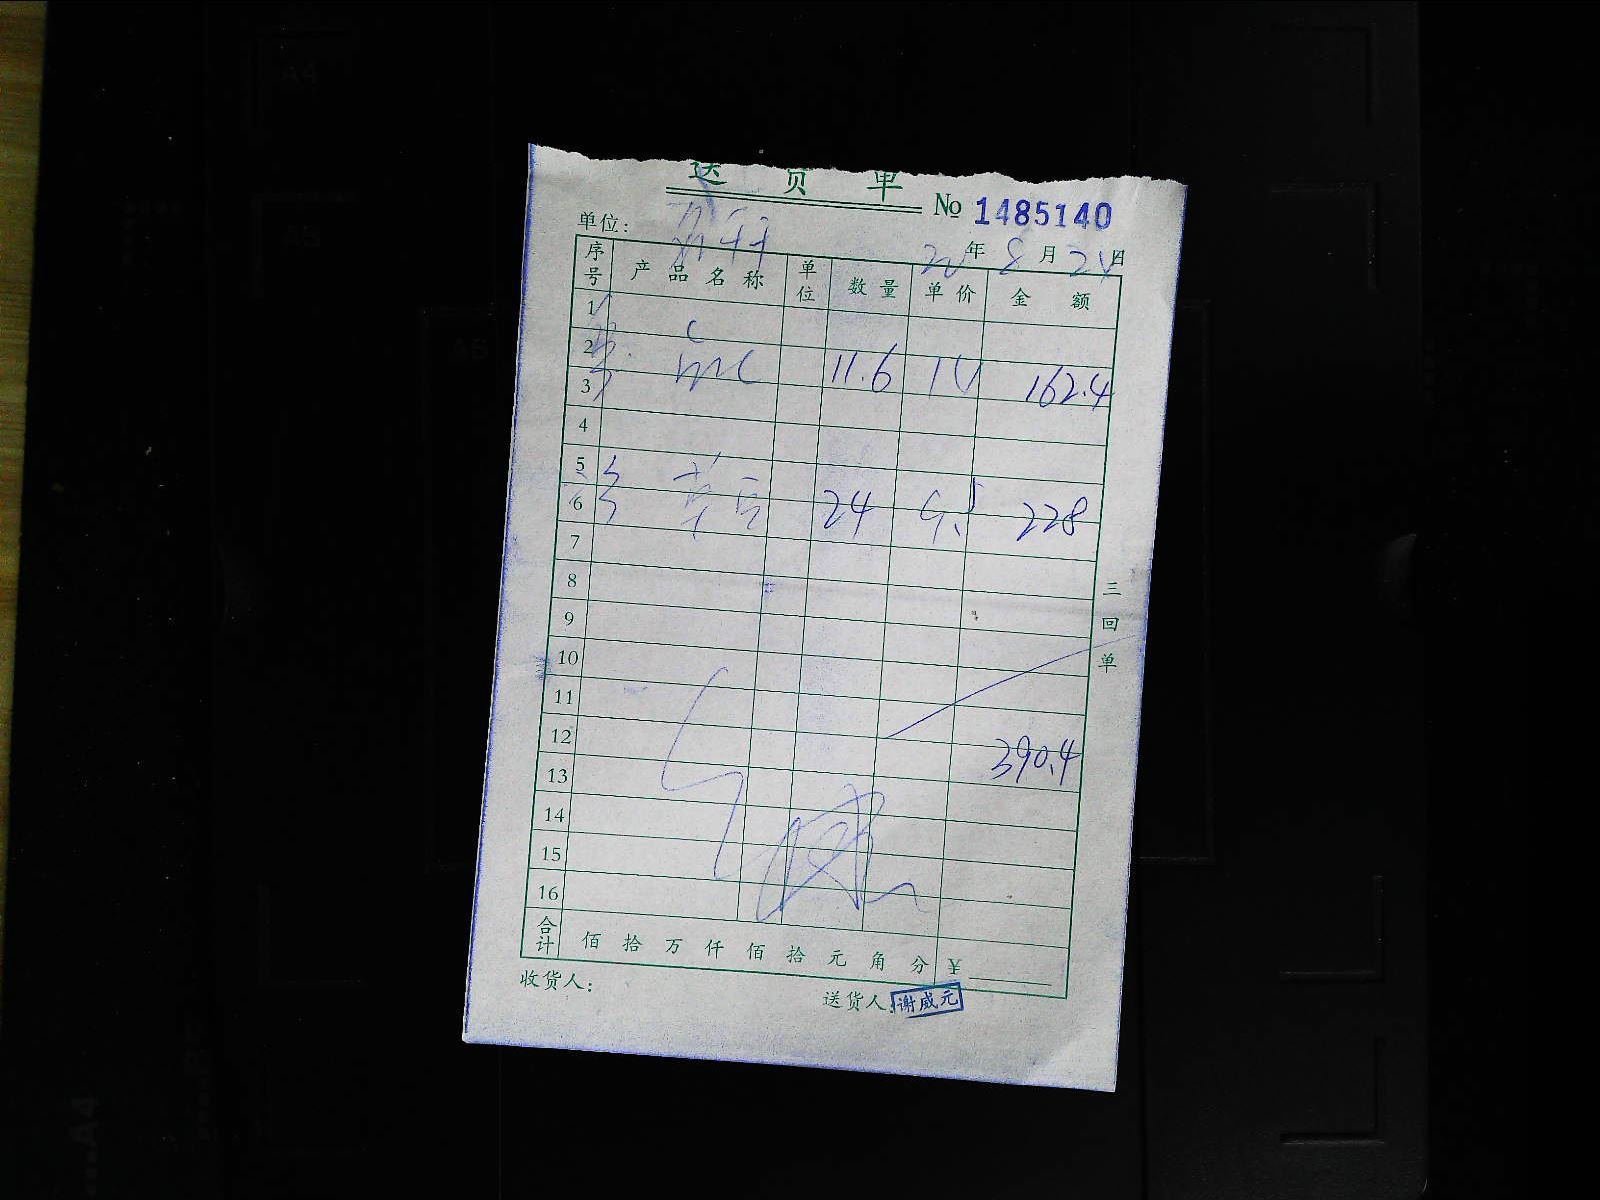 送货单
No 1485140
单位:
年 8 月 日
序号 产品名称 单位 数量 单价 金额
1
2
3 11.6 14 162.4
4
5
6 24 9.5 228
7
8
9
10
11
12
390.4
13
14
15
16
合计 佰 拾 万 仟 佰 拾 元 角 分 ¥
收货人:
送货人: 谢威元
三回单
A4
A5
A6
A4